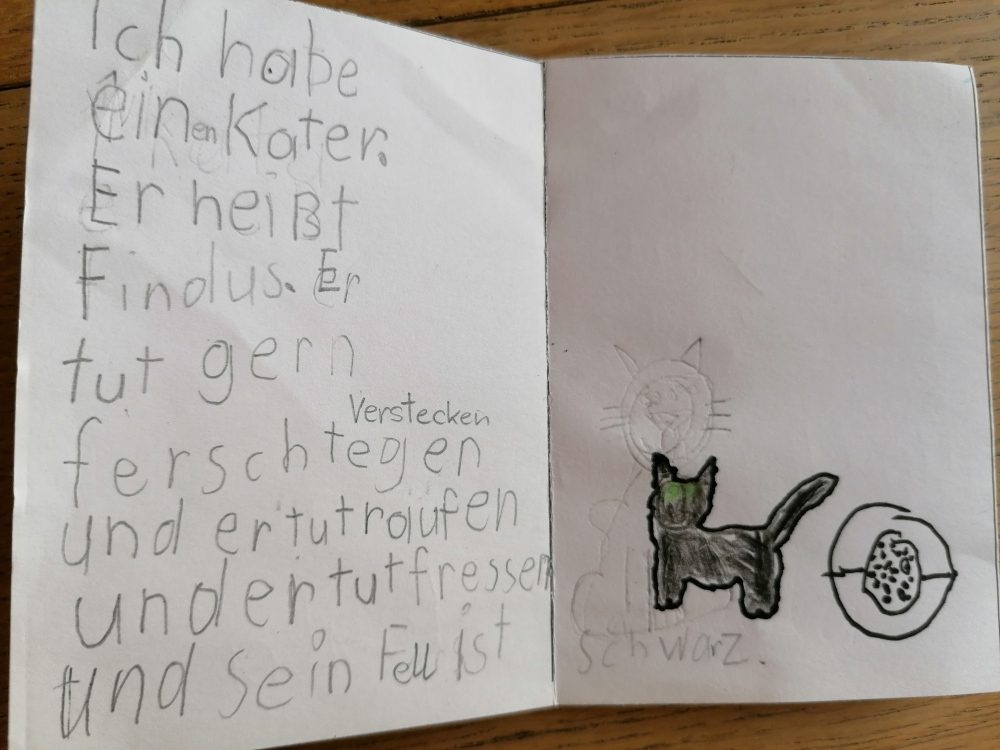 Ich habe
einen Kater.
Er heißt
Findus. Er
tut gern
Verstecken
ferschtegen
und er tut raufen
und er tut fressen
und sein Fell ist
schwarz.